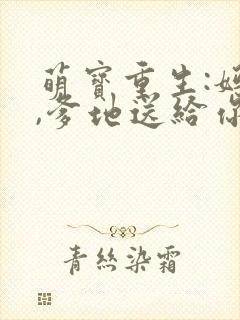 萌寶重生:
,爹地送給
青絲染霜